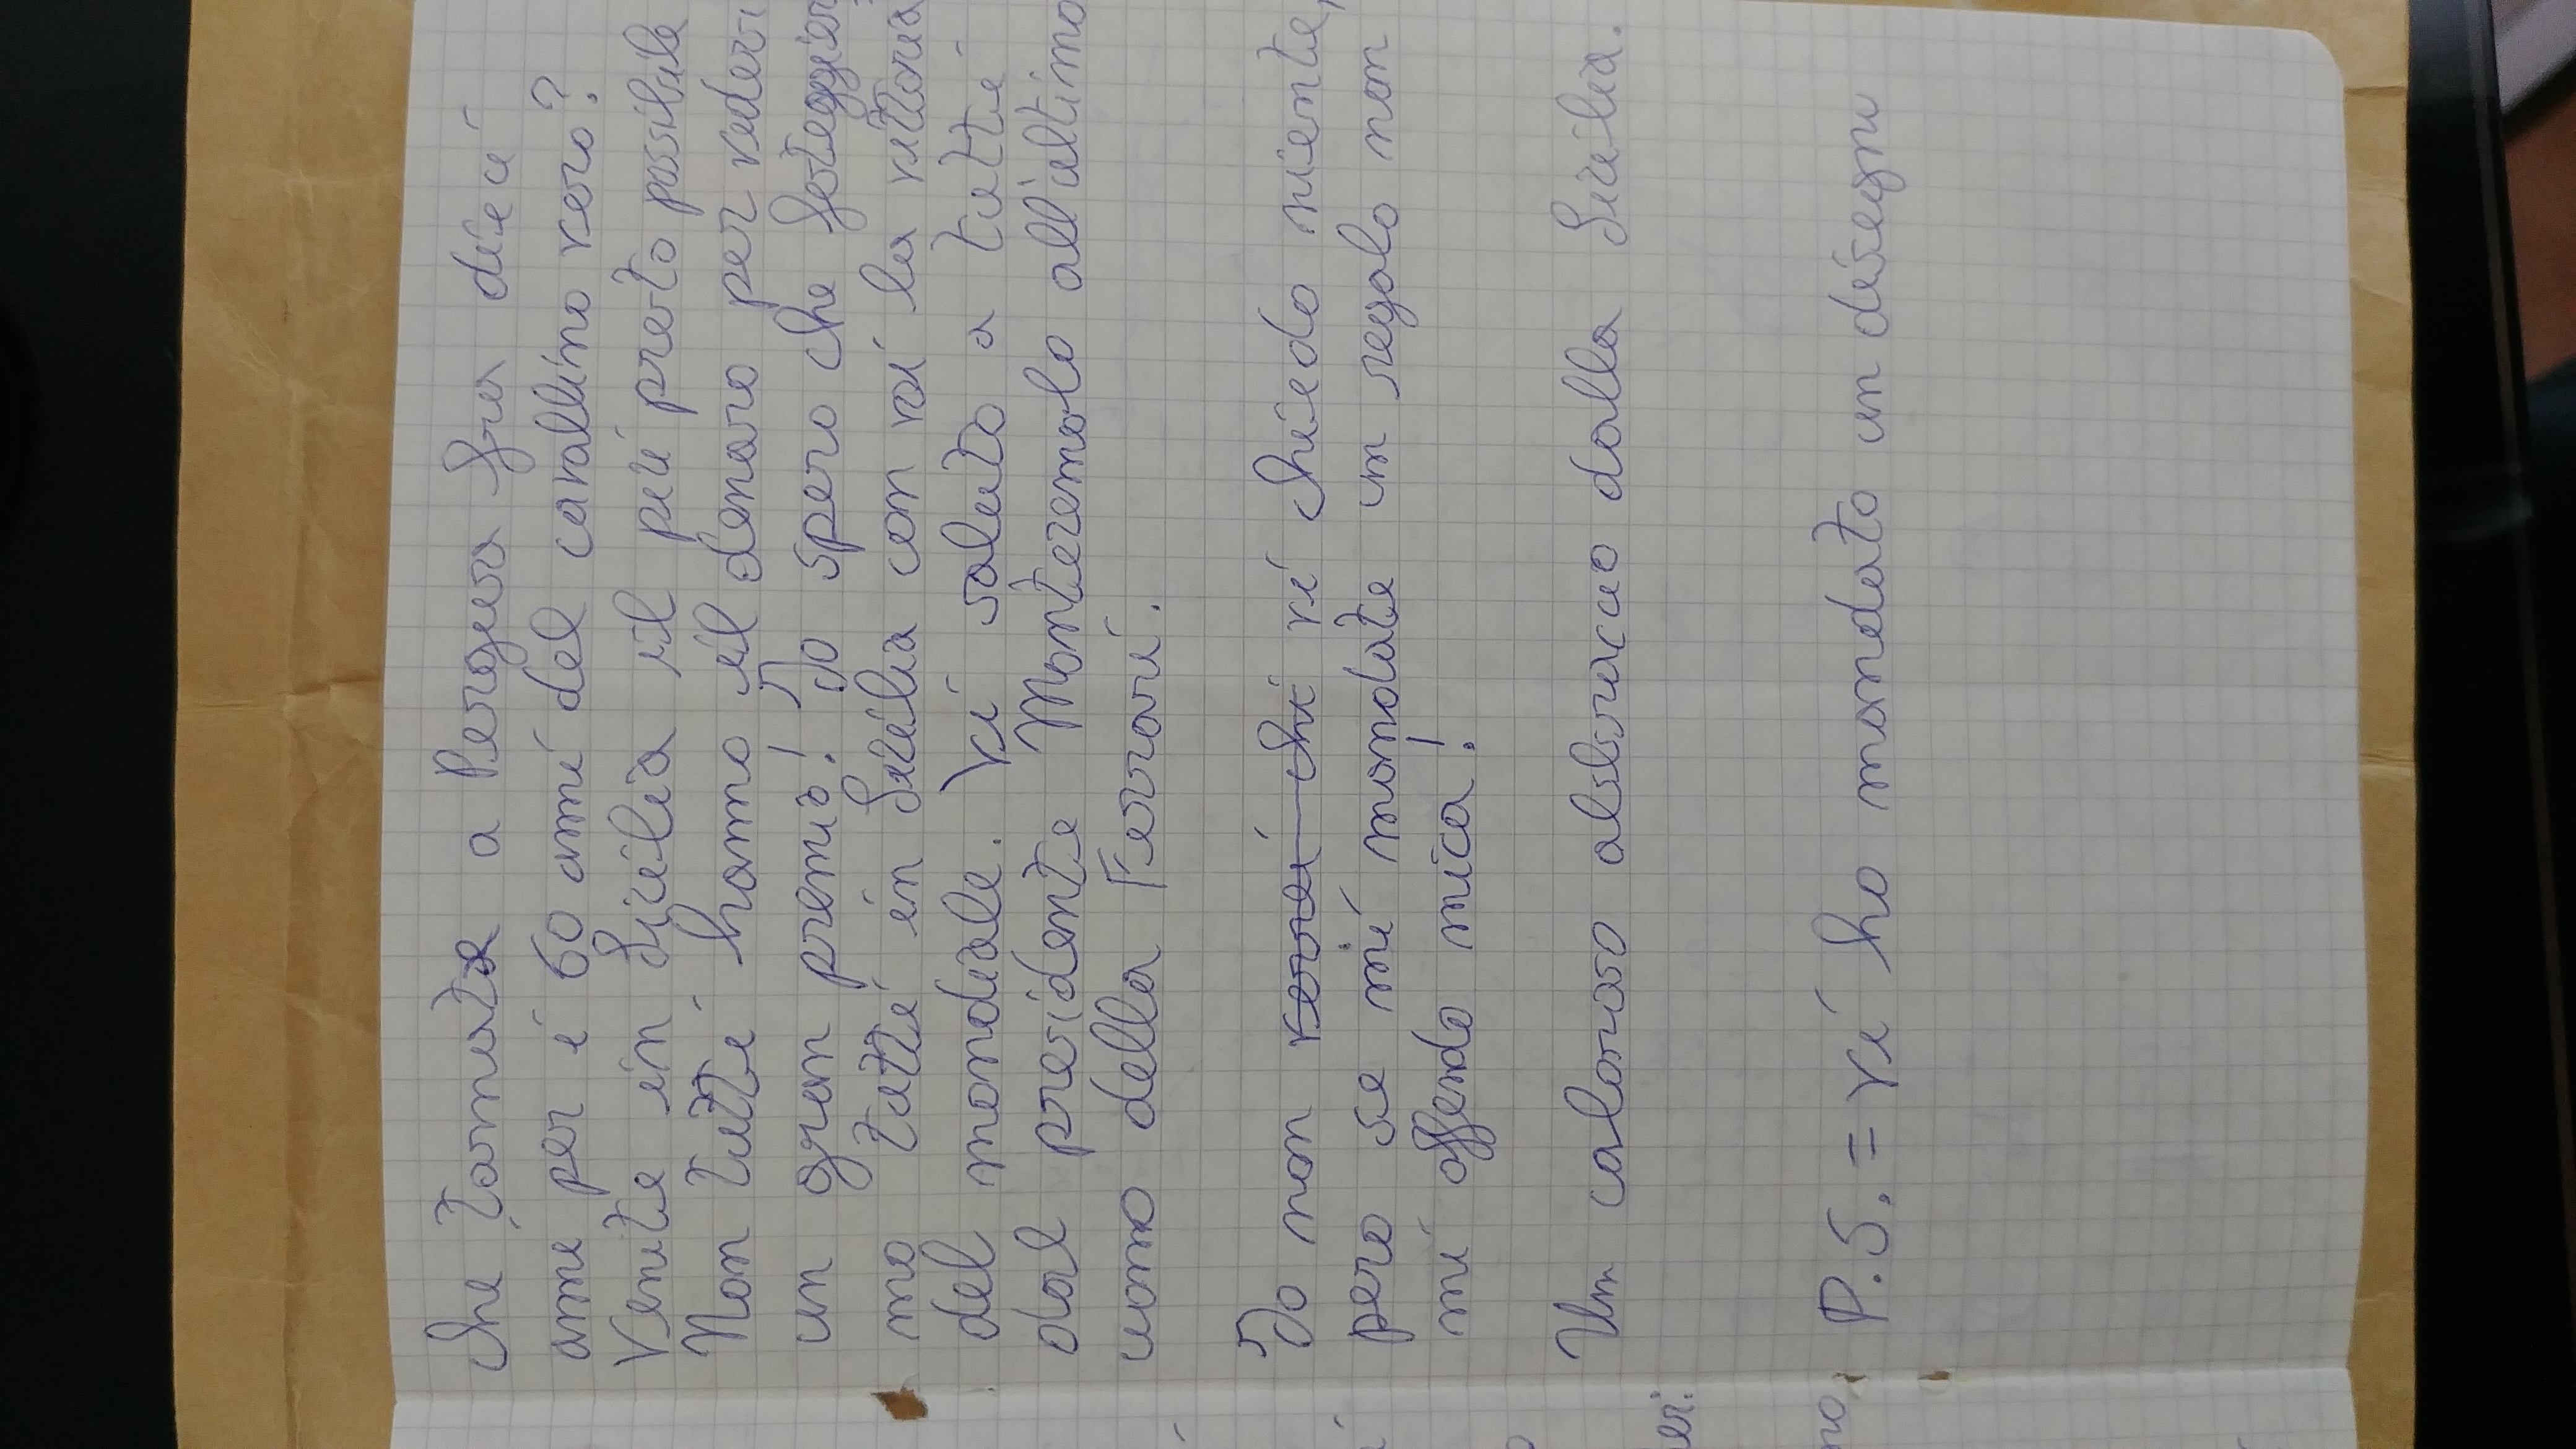 che tornate a Pergusa fra dieci
anni per i 60 anni del cavallino vero?
Venite in Sicilia il più presto possibile
Non tutti hanno il denaro per veder
un gran premio! Io spero che festeggier
mo tutti in Sicilia con voi la vittoria
del mondiale. Vi saluto a tutti
dal presidente Montezemolo all'ultimo
uomo della Ferrari.
Io non vorrei chi vi chiedo niente,
pero se mi mandate un regalo non
mi offendo mica!
Un caloroso abbraccio dalla Sicilia.
P.S. = vi ho mandato un disegno